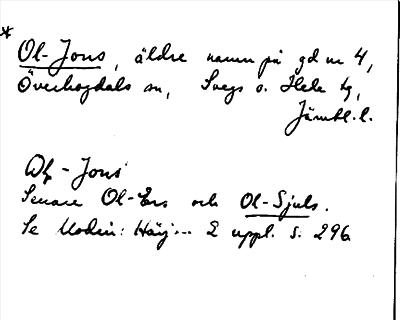 *
Ol-Jons, äldre namn på gd nr 4,
Överhogdals sn, Svegs o. Hede tg,
Jämtl.l.
Ol-Jons
Senare Ol-Ers och Ol-Sjuls.
Se Modin: Härj... 2 uppl. s. 296